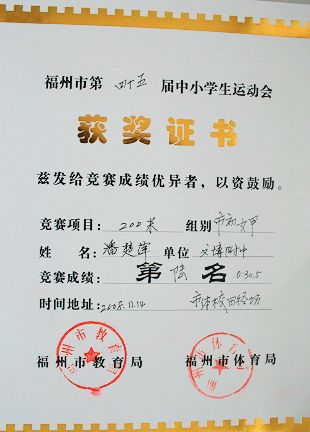 福州市第 四十五 届中小学生运动会
获奖证书
兹发给竞赛成绩优异者，以资鼓励。
竞赛项目： 200米 组别 市初女甲
姓 名： 潘楚萍 单位 附中
竞赛成绩： 第 陆 名 0:30.5
时间地址： 2008.11.14 市体校田径场
福州市教育局 福州市体育局